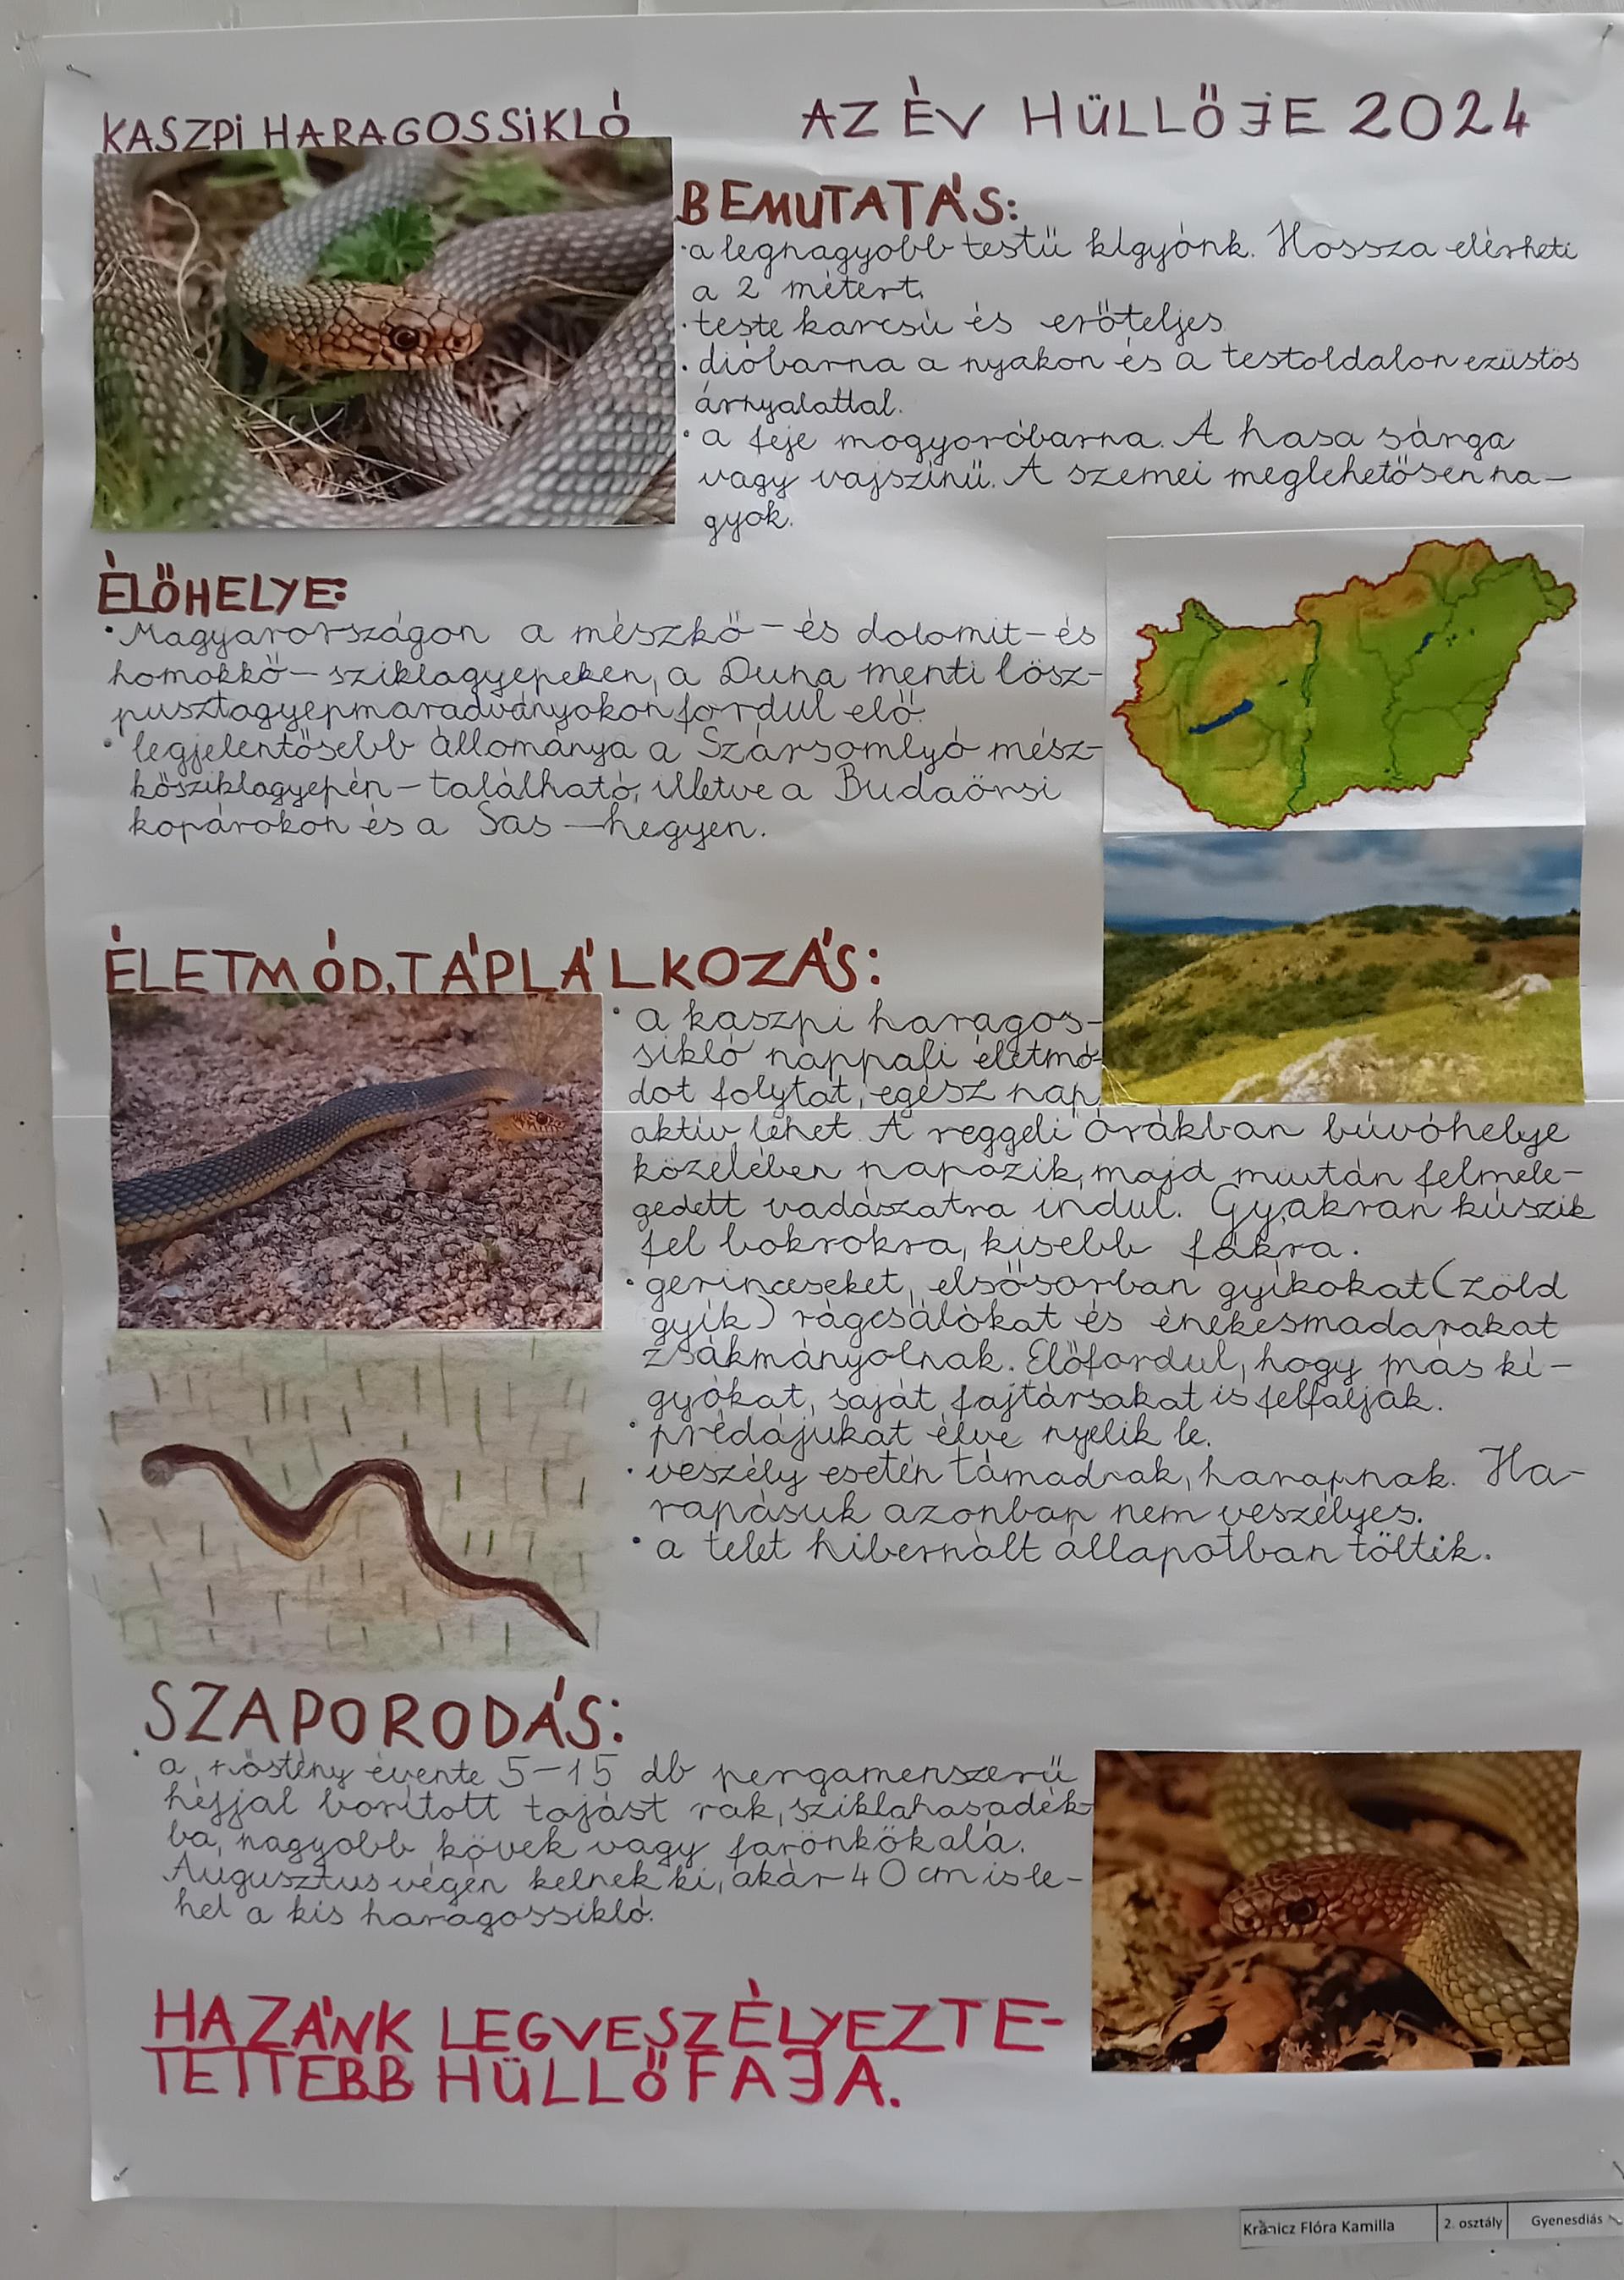 KASZPI HARAGOSSIKLÓ
AZ ÉV HÜLLŐJE 2024
BEMUTATÁS:
·a legnagyobb testű kígyónk. Hossza elérheti
a 2 métert.
·teste karcsú és erőteljes
·dióbarna a nyakon és a testoldalon ezüstös
árnyalattal.
·a feje mogyoróbarna. A hasa sárga
vagy vajszínű. A szemei meglehetősen na-
gyok.
ÉLŐHELYE:
·Magyarországon a mészkő- és dolomit- és
homokkő- sziklagyepeken, a Duna menti lösz-
pusztagyepmaradványokon fordul elő.
·legjelentősebb állománya a Szársomlyó mész-
kősziklagyepén - található, illetve a Budaörsi
kopárokon és a Sas - hegyen.
ÉLETMÓD, TÁPLÁLKOZÁS:
·a kaszpi haragos-
sikló nappali életmó-
dot folytat, egész nap
aktív lehet. A reggeli órákban búvóhelye
közelében napozik, majd miután felmele-
gedett vadászatra indul. Gyakran kúszik
fel bokrokra, kisebb fákra.
·gerinceseket, elsősorban gyíkokat (zöld
gyík) rágcsálókat és énekesmadarakat
zsákmányolnak. Előfordul, hogy más kí-
gyókat, saját fajtársakat is felfalják.
·prédájukat élve nyelik le.
·veszély esetén támadnak, harapnak. Ha-
rapásuk azonban nem veszélyes.
·a telet hibernált állapotban töltik.
SZAPORODÁS:
·a nőstény évente 5-15 db pergamenszerű
héjjal borított tojást rak, sziklahasadék-
ba, nagyobb kövek vagy farönkök alá.
Augusztus végén kelnek ki, akár 40 cm is le-
het a kis haragossikló.
HAZÁNK LEGVESZÉLYEZTE-
TETTEBB HÜLLŐFAJA.
Kránicz Flóra Kamilla 2. osztály Gyenesdiás